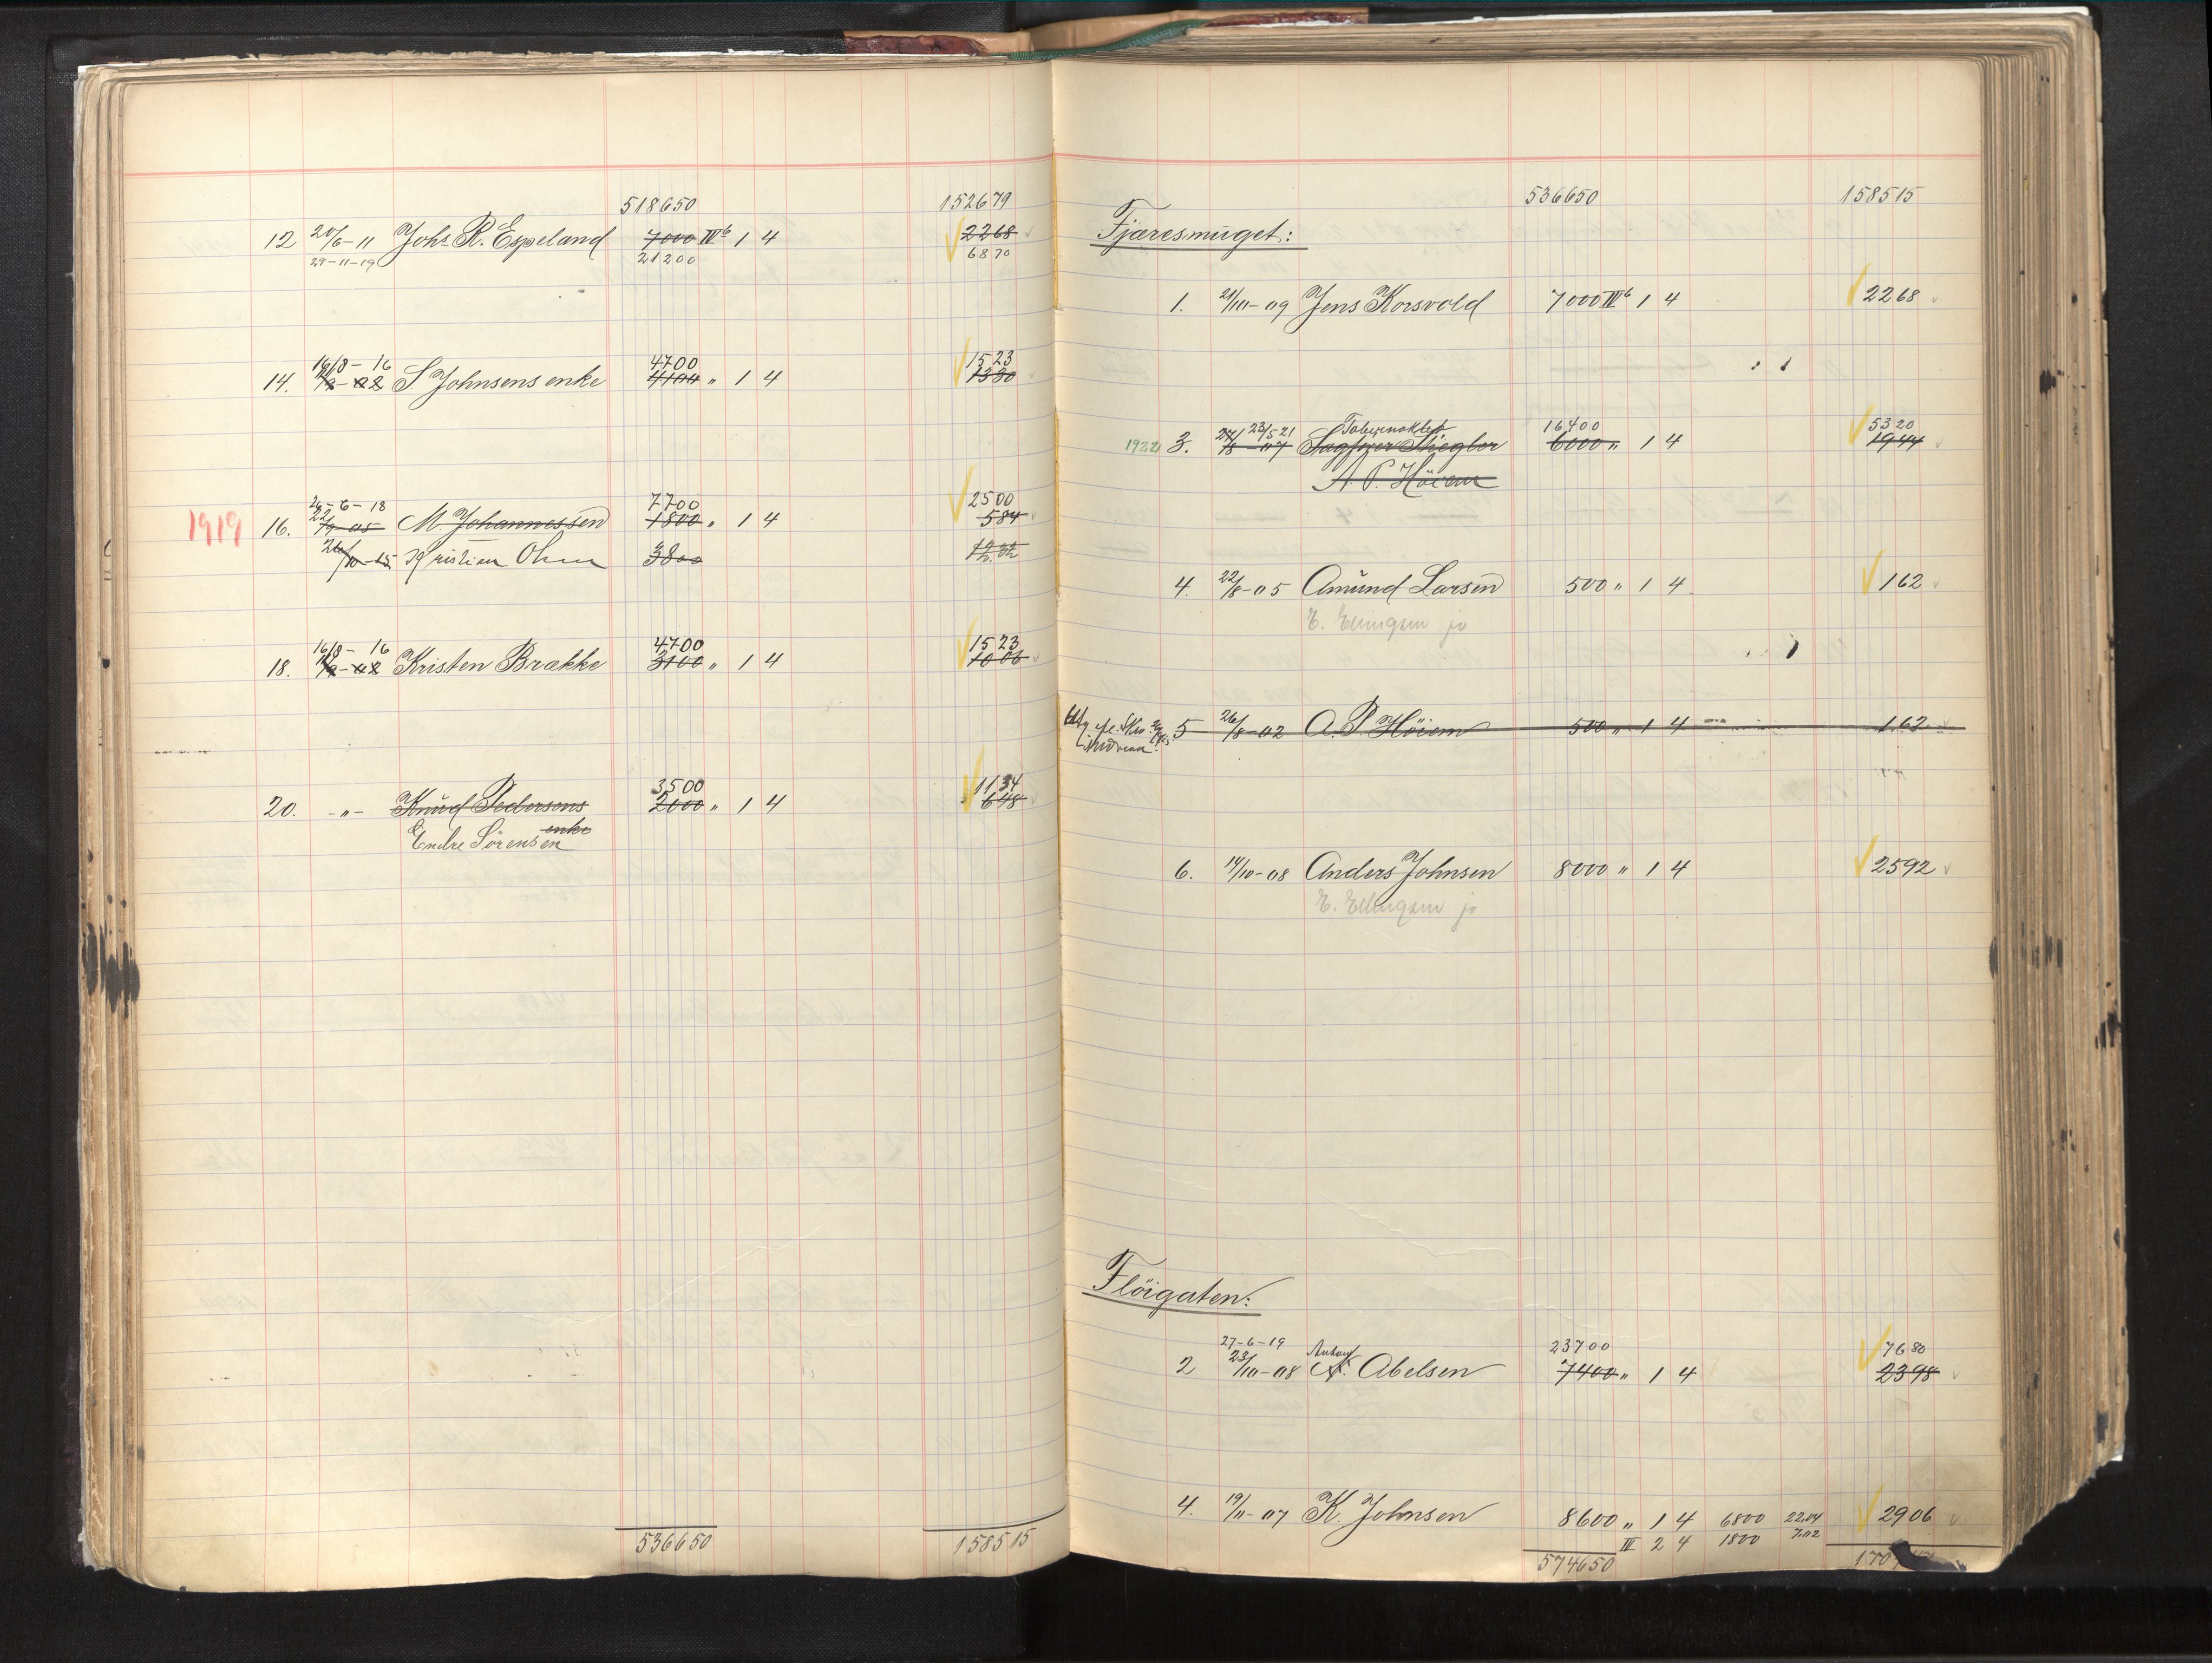 518650 152679
12 20/6-11 Johs R. Espeland 7000 IVb 1 4 2268
29-11-19 21200 6870
16/8-16 4700 1523
14. S. Johnsens enke 4100 " 1 4 1330
26-6-18 7700 2500
1919 16. 22/9-05 M. Johannessen 1800 " 1 4 584
26/10-15 Kristian Olsen 3800 12.32
16/8-16 4700 1523
18. Kristen Brække 3100 " 1 4 1006
3500 1134
20. -"- Knud Pedersens 2000 " 1 4 648
enke
Endre Sörensen
536650 158515
536650 158515
Fjæresmuget:
1. 21/10-09 Jens Korsvold 7000 IVb 1 4 2268
23/5 21 Tabernaklet 16400 5320
1922 3. 27/8-07 6000 " 1 4 1944
A. P. Höiem
4. 22/8-05 Amund Larsen 500 " 1 4 162
E. Ellingsen jr
5 26/8-02 A. P. Höiem 500 " 1 4 162
6. 14/10-08 Anders Johnsen 8000 " 1 4 2592
E. Ellingsen jr
Flöigaten:
27-6-19 Anton 23700 7680
2 23/10-08 A. Abelsen 7400 " 1 4 2398
4. 19/11-07 K. Johnsen 8600 " 1 4 6800 22.04 2906
III 2 4 1800 7.02
574650